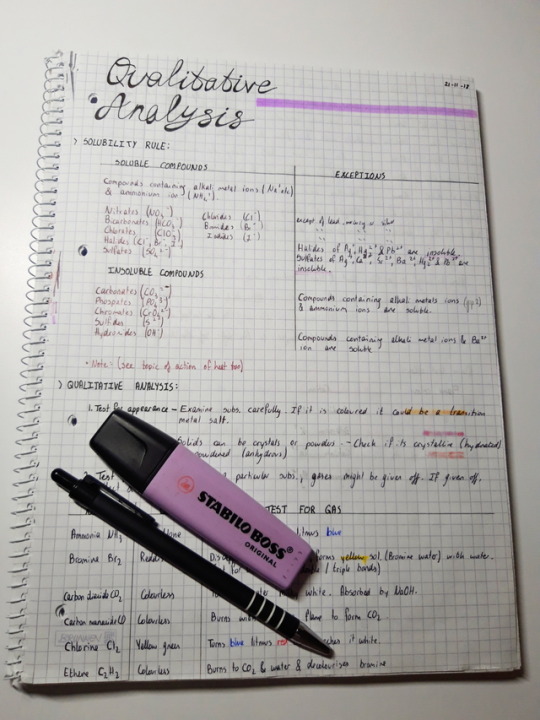 Qualitative
Analysis
21-11-18
> SOLUBILITY RULE:
SOLUBLE COMPOUNDS
EXCEPTIONS
Compounds containing alkali metal ions (Na⁺ etc)
& ammonium ion (NH₄⁺).
Nitrates (NO₃⁻) Chlorides (Cl⁻)
Bicarbonates (HCO₃⁻) Bromides (Br⁻)
Chlorates (ClO₃⁻) Iodides (I⁻)
Halides (Cl⁻, Br⁻, I⁻)
Sulfates (SO₄²⁻)
except of lead, mercury
Halides of Ag⁺, Hg₂²⁺ & Pb²⁺ are insoluble.
Sulfates of Ag⁺, Ca²⁺, Sr²⁺, Ba²⁺, Hg₂²⁺ & Pb²⁺ are
insoluble.
INSOLUBLE COMPOUNDS
Carbonates (CO₃²⁻)
Phospates (PO₄³⁻)
Chromates (CrO₄²⁻)
Sulfides (S²⁻)
Hydroxides (OH⁻)
Compounds containing alkali metals ions (gp 1)
& ammonium ions are soluble.
Compounds containing alkali metal ions & Ba²⁺
ion are soluble.
* Note: (see topic of action of heat too)
> QUALITATIVE ANALYSIS:
1. Test for appearance - Examine subs. carefully If it is coloured it could be a transition
metal salt.
Solids can be crystals or powders - Check if its crystalline (hydrated)
powdered (anhydrous)
2. Test particular subs., gases might be given off. If given off,
TEST FOR GAS
Ammonia NH₃ litmus blue
Bromine Br₂ forms yellow sol. (Bromine water) with water.
/ triple bonds)
Carbon dioxide CO₂ Colourless white. Absorbed by NaOH.
Carbon monoxide CO Colourless Burns flame to form CO₂
Chlorine Cl₂ Yellow green Turns blue litmus red bleaches it white.
Ethene C₂H₂ Colourless Burns to CO₂ & water & decolourises bromine
STABILO BOSS
ORIGINAL